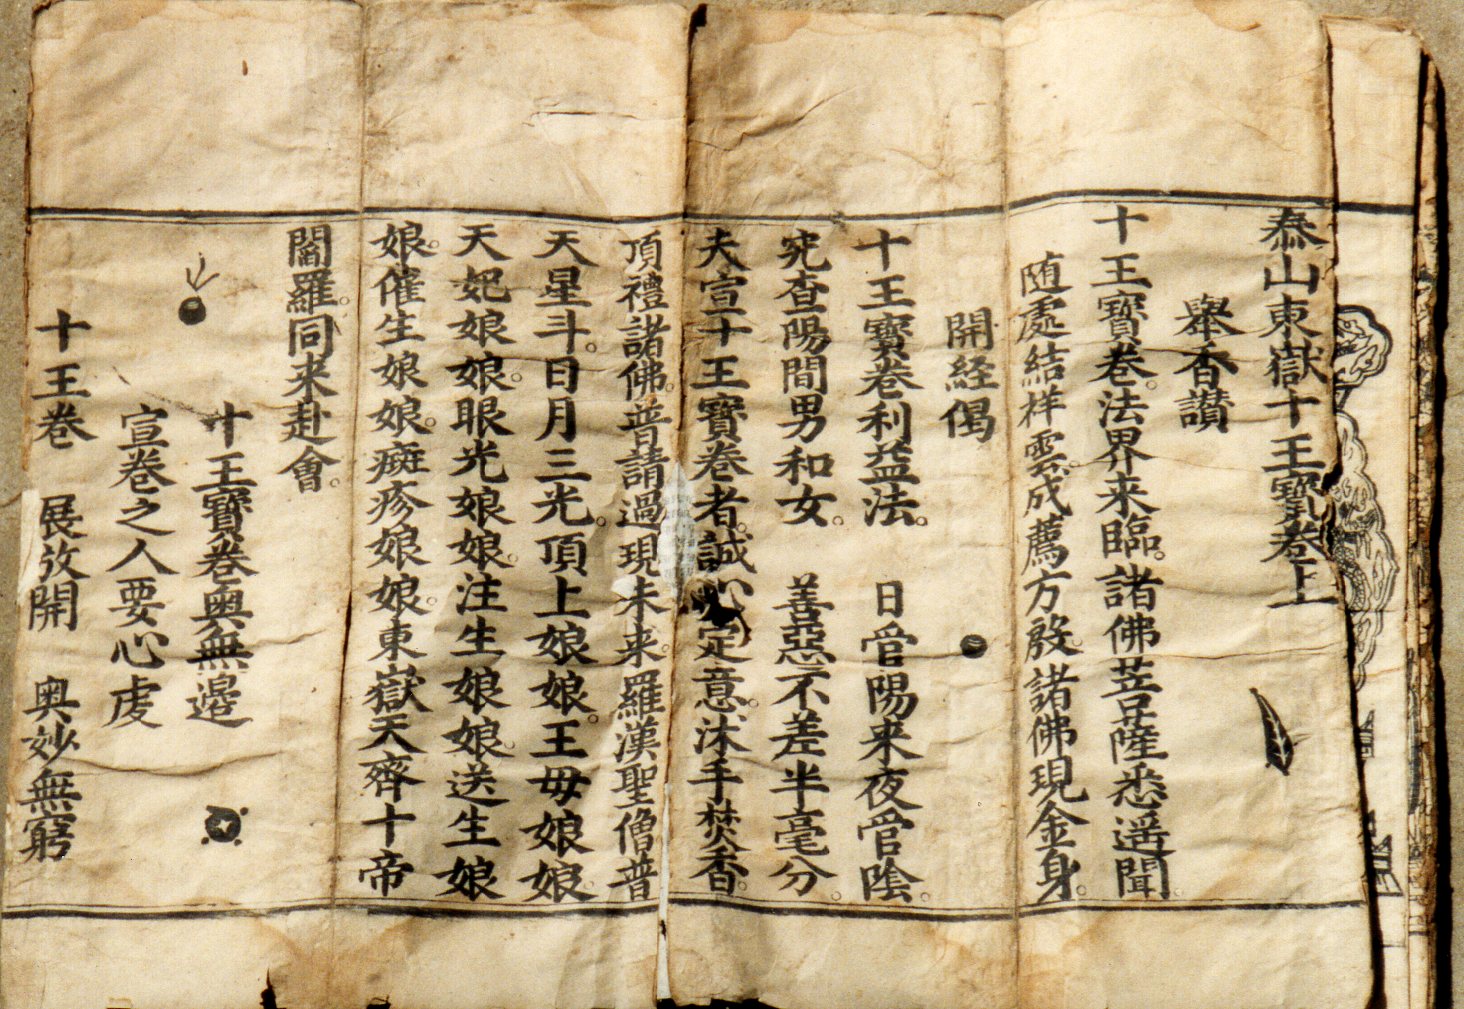 泰山東嶽十王寶卷上
舉香讃
十王寶卷。法界来臨。諸佛菩薩悉遥聞
随處結祥雲。成薦方殷。諸佛現金身。
開経偈
十王寶卷利益法。 日管陽来夜管陰。
究查陽間男和女。 善惡不差半毫分。
夫宣十王寶卷者。誠心定意。沐手焚香。
頂禮諸佛。普請過現未来。羅漢聖僧。普
天星斗。日月三光。頂上娘娘。王母娘娘。
天妃娘娘。眼光娘娘。注生娘娘。送生娘
娘。催生娘娘。癍疹娘娘。東嶽天齊十帝
閻羅。同来赴會。
十王寶卷奥無邊
宣卷之人要心虔
十王卷 展放開 奥妙無窮